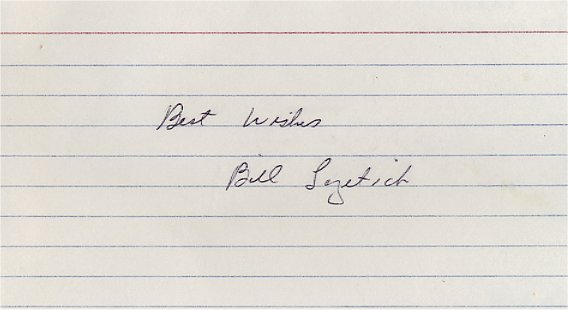 Best Wishes
Bill Lazetich